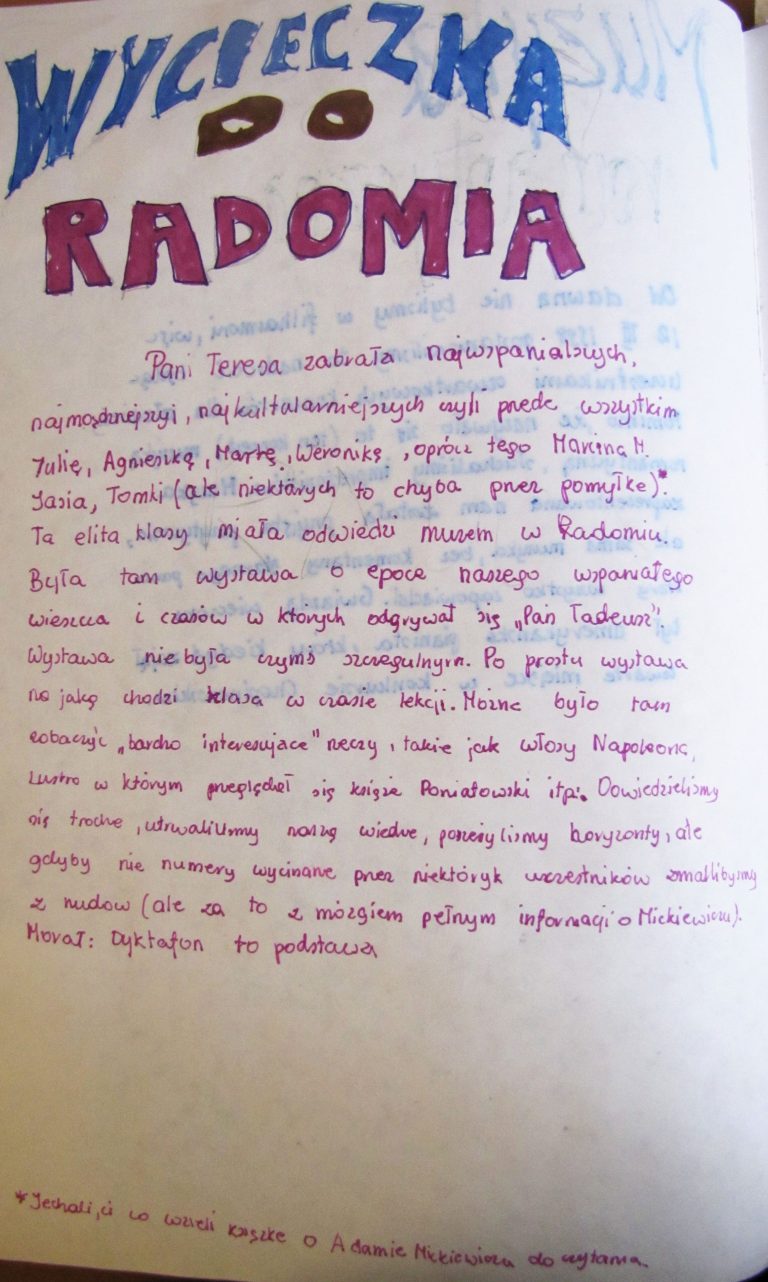 WYCIECZKA
DO
RADOMIA
Pani Teresa zabrała najwspanialszych,
najmądrzejszyi, najkulturarniejszych czyli przede wszystkim
Julię, Agnieszkę, Martę, Weronikę, oprócz tego Marcina M.
Jasia, Tomki (ale niektórych to chyba przez pomyłkę)*.
Ta elita klasy miała odwiedzi muzem w Radomiu.
Była tam wystawa o epoce naszego wspaniałego
wieszcza i czasów w których odgrywał się „Pan Tadeusz".
Wystawa nie była czymś szczegulnym. Po prostu wystawa
na jaką chodzi klasa w czasie lekcji. Można było tam
zobaczyć „bardzo interesujace" rzeczy, takie jak włosy Napoleona,
Lustro w którym przeglądał się książe Poniatowski itp. Dowiedzieliśmy
się troche, utrwaliliśmy naszą wiedze, poszerzylismy horyzonty, ale
gdyby nie numery wycinane przez niektóryk uczestników zmarlibyśmy
z nudow (ale za to z mózgiem pełnym informacji o Mickiewiczu).
Morał: Dyktafon to podstawa
*Jechali, ci co wzieli książke o Adamie Mickiewiczu do czytania.